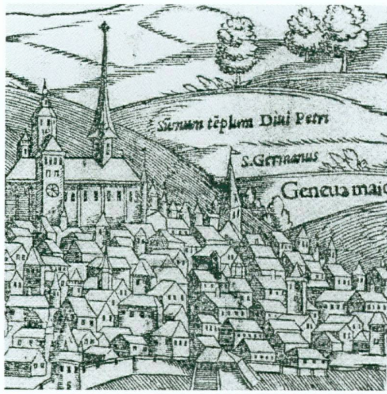 Sũmum tẽplum Diui Petri
S. Germanus
Geneua mai